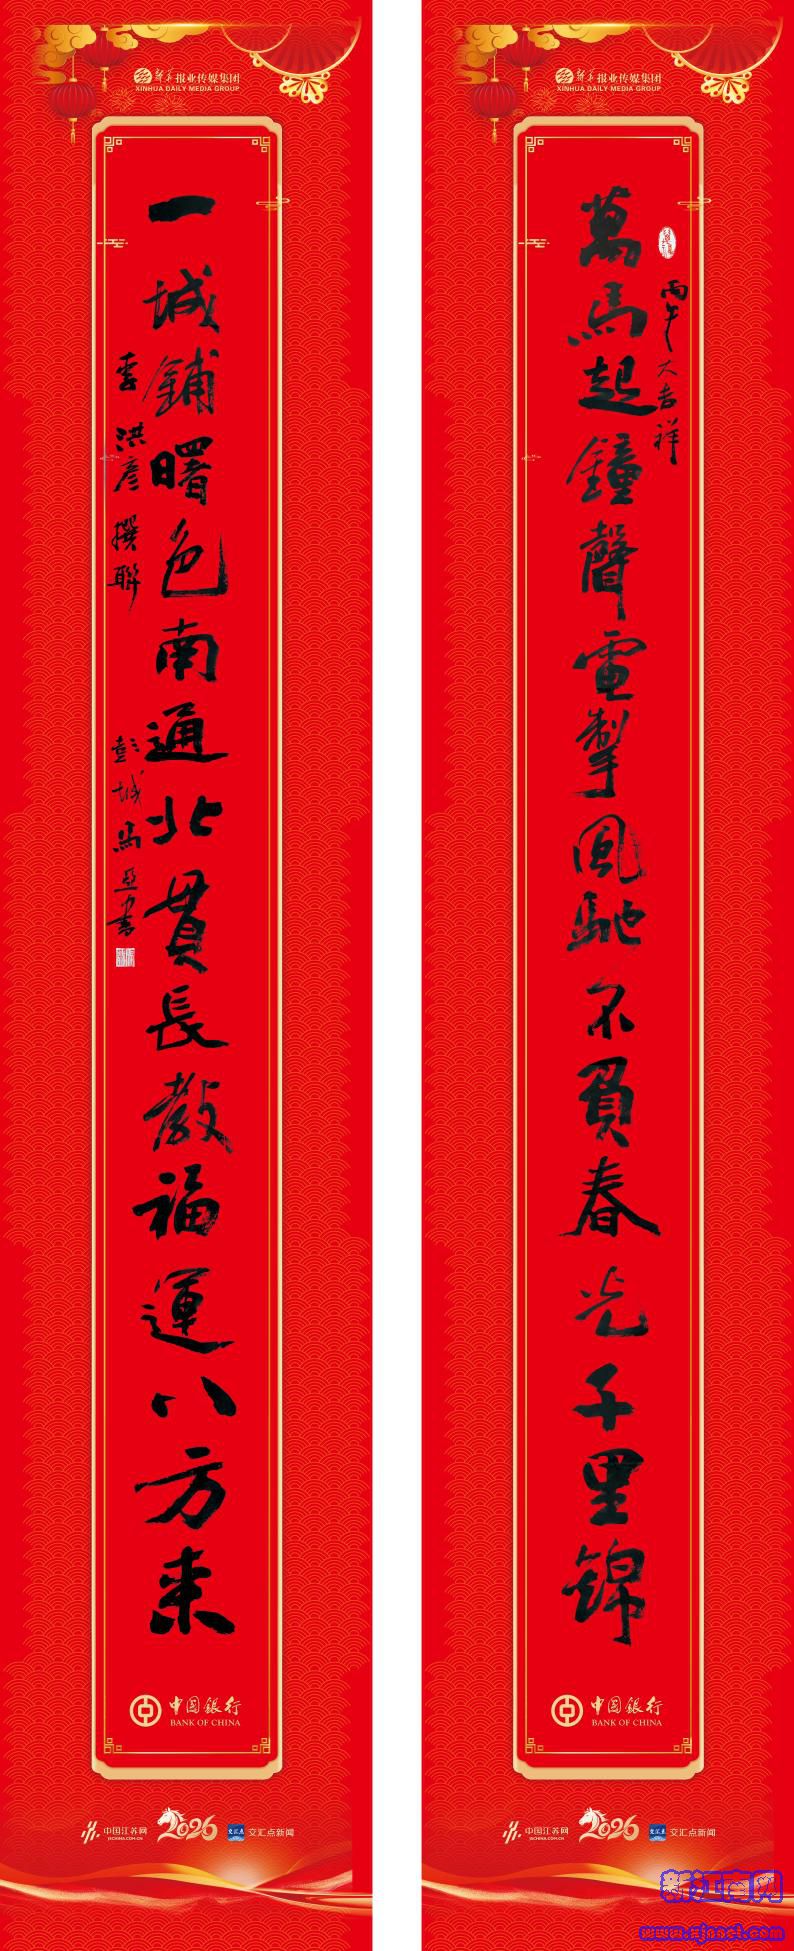 新华报业传媒集团
XINHUA DAILY MEDIA GROUP
萬馬起鐘聲電掣風馳不負春光千里錦
丙午大吉祥
中国银行
BANK OF CHINA
中国江苏网
JSCHINA.COM.CN
2026
交汇点
交汇点新闻
新华报业传媒集团
XINHUA DAILY MEDIA GROUP
一城鋪曙色南通北貫長教福運八方来
洪彦撰聯
彭城馬亞書
中国银行
BANK OF CHINA
中国江苏网
JSCHINA.COM.CN
2026
交汇点
交汇点新闻
新江南网
www.xjnnet.com